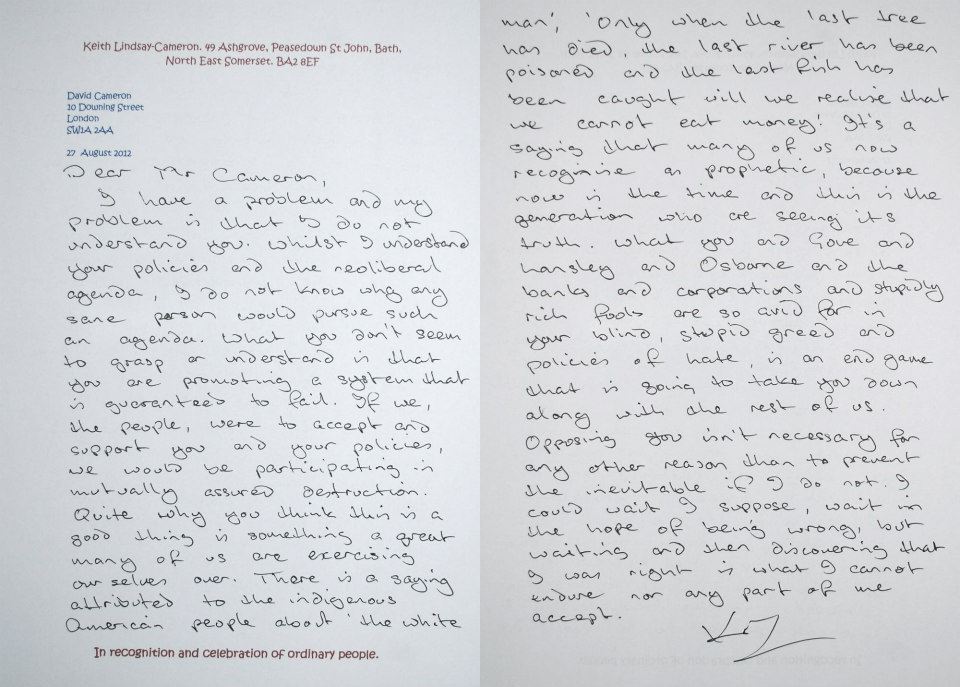 Keith Lindsay-Cameron. 49 Ashgrove, Peasedown St John, Bath,
North East Somerset. BA2 8EF
David Cameron
10 Downing Street
London
SW1A 2AA
27 August 2012
Dear Mr Cameron,
I have a problem and my
problem is that I do not
understand you. Whilst I understand
your policies and the neoliberal
agenda, I do not know why any
sane person would pursue such
an agenda. What you don't seem
to grasp or understand is that
you are promoting a system that
is guaranteed to fail. If we,
the people, were to accept and
support you and your policies,
we would be participating in
mutually assured destruction.
Quite why you think this is a
good thing is something a great
many of us are exercising
ourselves over. There is a saying
attributed to the indigenous
American people about 'the white
In recognition and celebration of ordinary people.
man', 'Only when the last tree
has died, the last river has been
poisoned and the last fish has
been caught will we realise that
we cannot eat money! It's a
saying that many of us now
recognise as prophetic, because
now is the time and this is the
generation who are seeing its
truth. What you and Gove and
Lansley and Osborne and the
banks and corporations and stupidly
rich fools are so avid for in
your blind, stupid greed and
policies of hate, is an end game
that is going to take you down
along with the rest of us.
Opposing you isn't necessary for
any other reason than to prevent
the inevitable if I do not. I
could wait I suppose, wait in
the hope of being wrong, but
waiting and then discovering that
I was right is what I cannot
endure nor any part of me
accept.